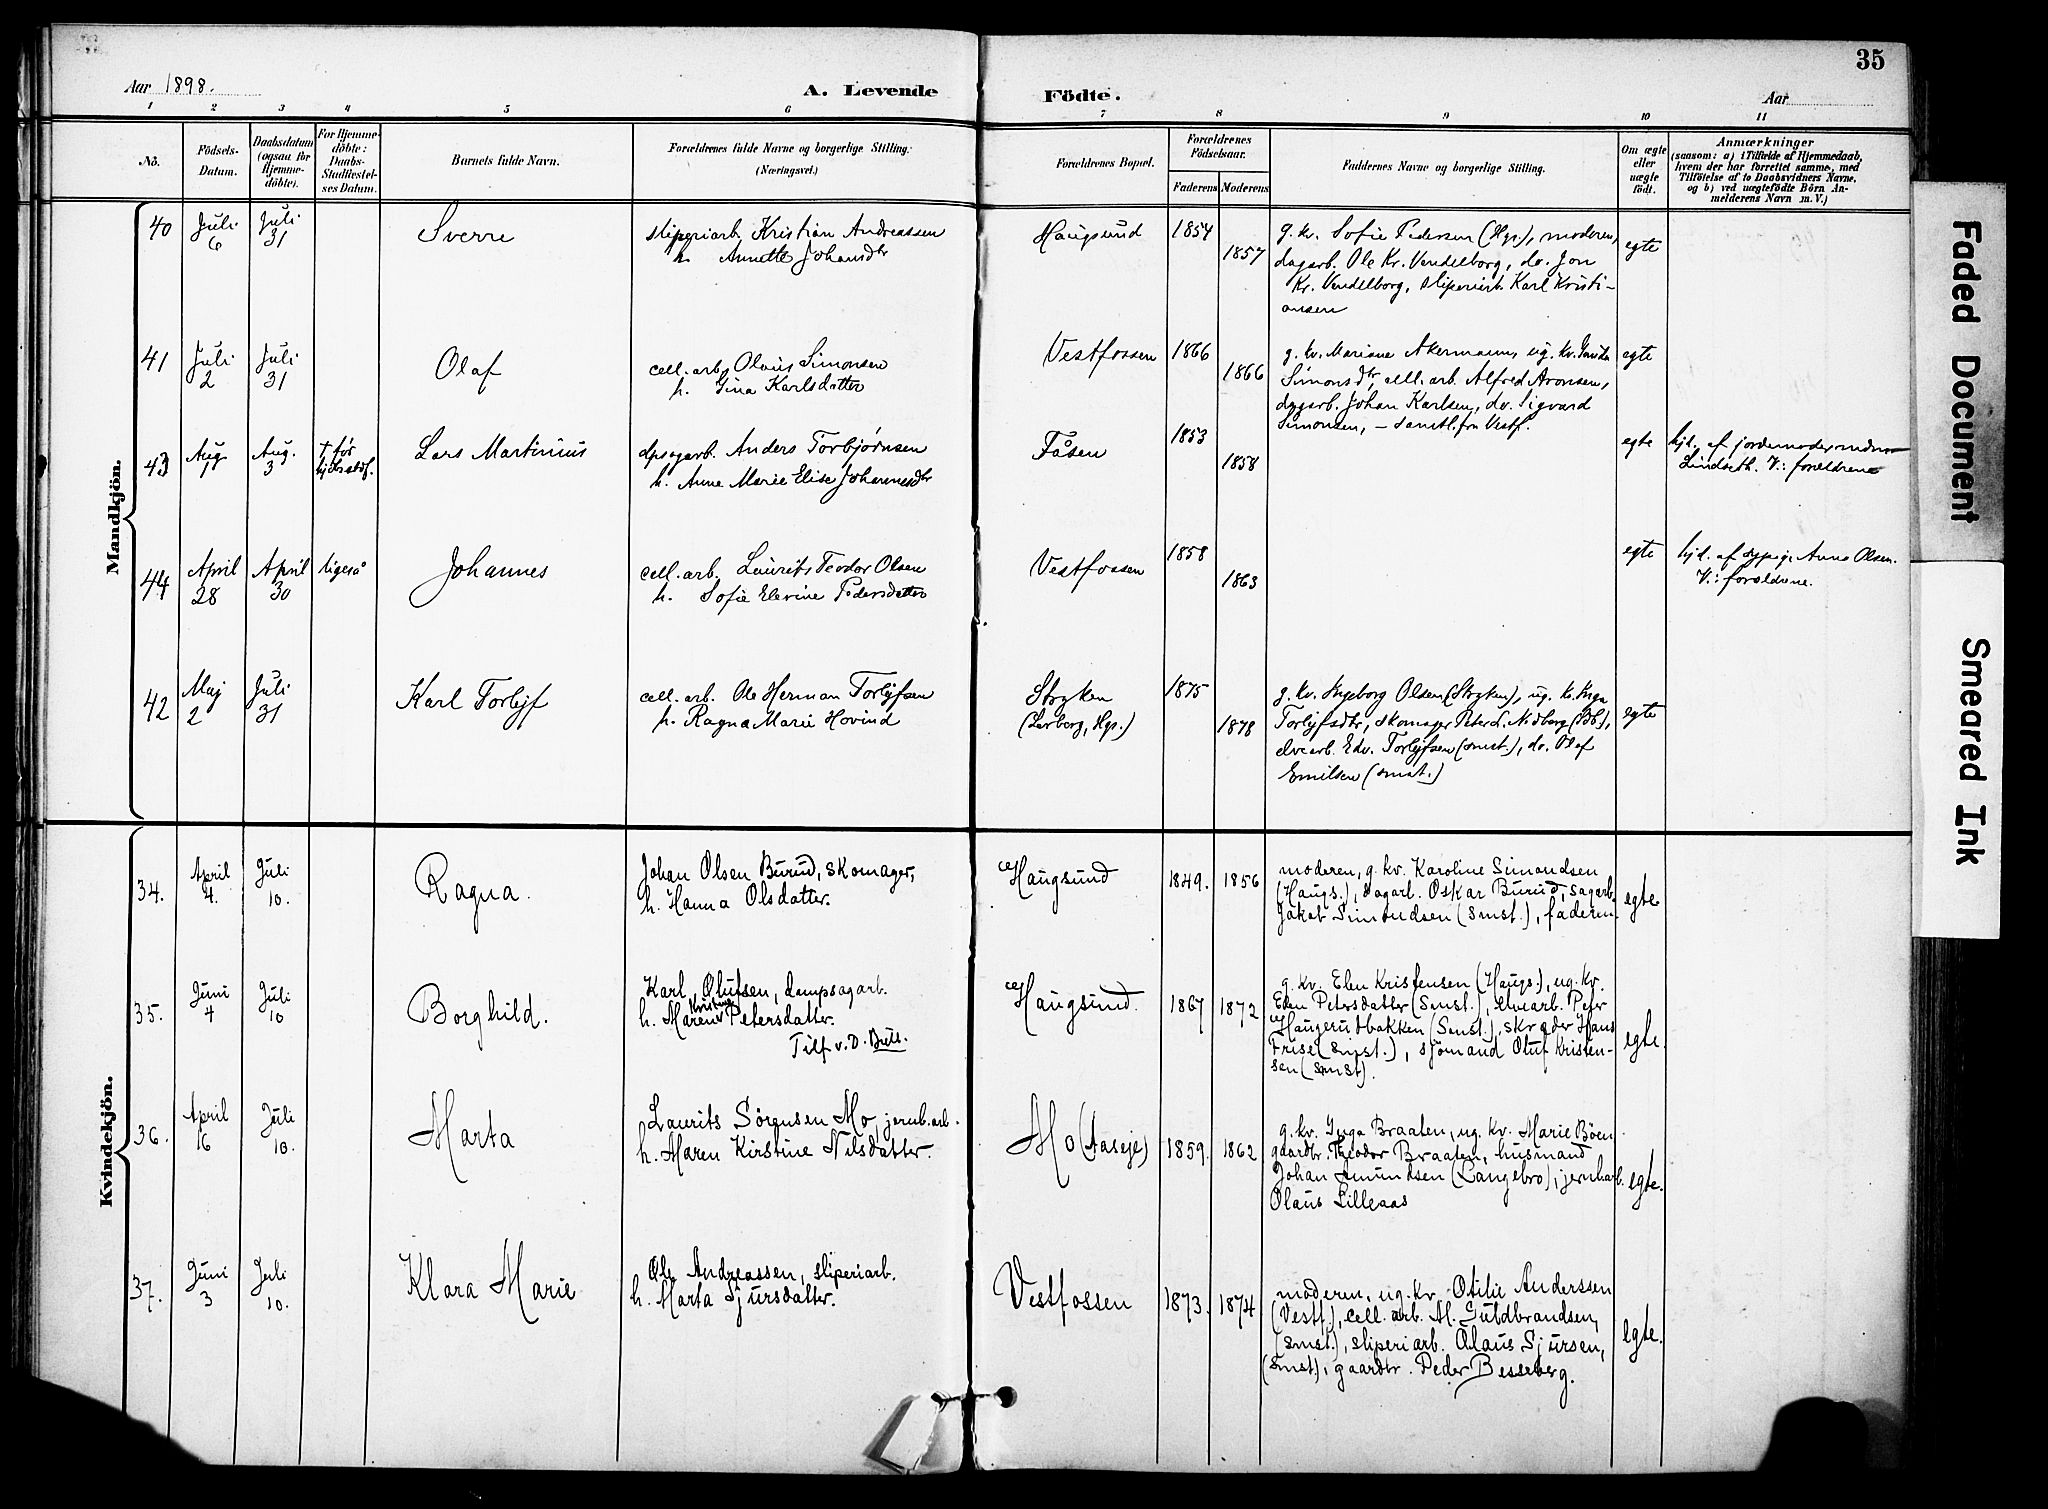 35
Aar 1898.
A. Levende Födte.
Aar
1 2 3 4 5 6 7 8 9 10 11
No.
Födsels-Datum.
Daabsdatum (ogsaa for Hjemme-döbte).
For Hjemme-döbte: Daabs-Stadfæstel-ses Datum.
Barnets fulde Navn.
Forældrenes fulde Navne og borgerlige Stilling. (Næringsvei.)
Forældrenes Bopæl.
Forældrenes Födselsaar.
Faderens Moderens
Faddernes Navne og borgerlige Stilling.
Om ægte eller uægte födt.
Anmærkninger
(saasom: a) i Tilfælde af Hjemmedaab,
hvem der har forrettet samme, med
Tilföielse af to Daabsvidners Navne,
og b) ved uægtefödte Börn An-
melderens Navn m. V.)
Mandkjön.
40 Juli 6 Juli 31 Sverre
sliperiarb. Kristian Andreassen
h. Annette Johansdtr
Haugsund 1854 1857
g. kv. Sofie Pedersen (Hgs), moderen,
dagarb. Ole Kr. Vendelborg, do. Jon
Kr. Vendelborg, sliperiarb. Karl Kristi-
ansen
egte
41 Juli 2 Juli 31 Olaf
cell. arb. Olaus Simonsen
h. Gina Karlsdatter
Vestfossen 1866 1866
g. kv. Mariane Akermann, ug. kv.
Simonsdtr, cell. arb. Alfred Aronsen,
dagarb. Johan Karlsen, do. Sigvard
Simonsen, – samtl. fra Vestf.
egte
43 Aug 1 Aug. 3 † før
Lars Martinius
dpsagarb. Anders Torbjørnsen
h. Anne Marie Elise Johannesdtr
Fåsen 1853 1858
egte
hjd. af jordemoder
Lindseth. V.: forældrene
44 April 28 April 30 ligeså Johannes
cell. arb. Laurits Teodor Olsen
h. Sofie Elevine Pedersdatter
Vestfossen 1858 1863
egte
hjd. af Anna Olsen.
V.: forældrene.
42 Maj 2 Juli 31 Karl Torleif
cell. arb. Ole Herman Torleifsen
h. Ragna Marie Hovind
Stryken
(Lerberg, Hgs.)
1875 1878
g. kv. Ingeborg Olsen (Stryken), ug. kv. Inga
Torleifsdtr, skomager Peter L. Nidberg
elvearb. Edv. Torleifsen (smst.), do. Olaf
Emilsen (smst.)
egte
Kvindekjön.
34. April 4. Juli 10. Ragna.
Johan Olsen Burud, skomager,
h. Hanna Olsdatter.
Haugsund 1849. 1856
moderen, g. kv. Karoline Simondsen
(Haugs.), dagarb. Oskar Burud, sagarb.
Jakob Simondsen (smst.), faderen.
egte
35. Juni 4 Juli 10 Borghild.
Karl Olufsen, dampsagarb.
h. Maren Kristine Petersdatter.
Tilf v. D. Bull.
Haugsund. 1867 1872
g. kv. Elen Kristensen (Haugs.), ug. kv.
Eden Petersdatter (smst.), elvearb. Peter
Haugerudbakken (smst.), skræder Hans
Frise (smst.), sjömand Oluf Kristen-
sen (smst).
egte.
36. April 16 Juli 10. Marta
Laurits Sörensen Mo, jernb. arb.
h. Maren Kirstine Nilsdatter.
Mo (Aaseje) 1859. 1862
g. kv. Inga Braaten, ug. kv. Marie Böen
gaardbr. Theodor Braaten, husmand
Johan Amundsen (Langebro), jernbarb.
Olaus Lilleaas
egte.
37. Juni 3 Juli 10. Klara Marie
Ole Andreassen, sliperiarb.
h. Marta Sjursdatter.
Vestfossen 1873. 1874
moderen, ug. kv. Otilie Anderssen
(Vestf.), cell. arb. M. Guldbrandsen,
(smst.), sliperiarb. Olaus Sjursen,
(smst), gaardbr. Peder Besseberg.
egte.
Faded Document
Smeared Ink